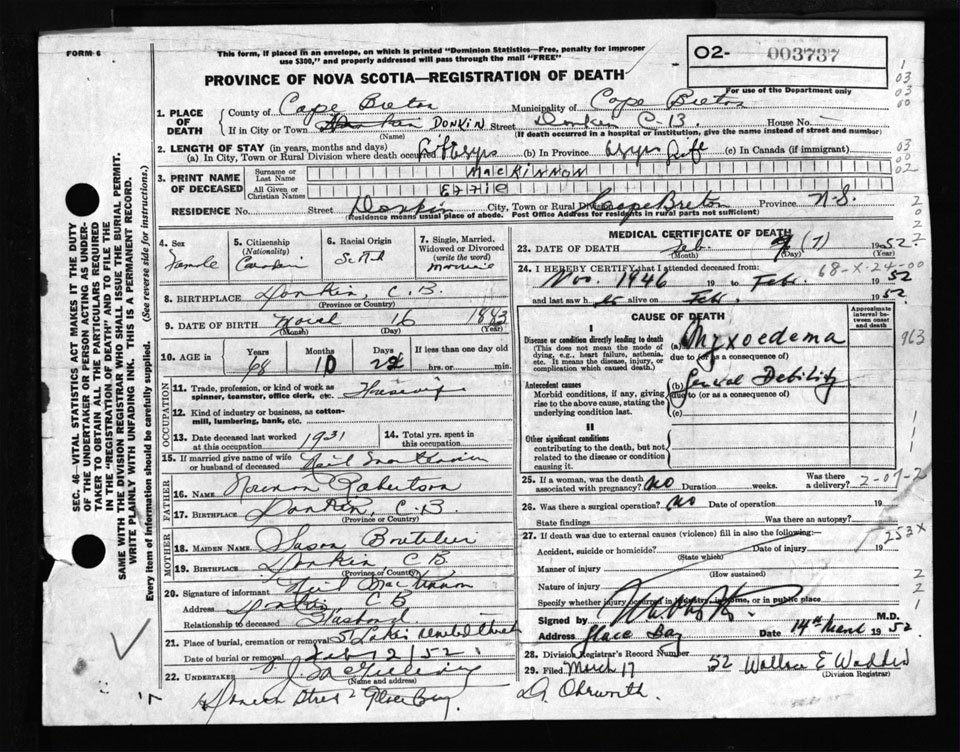 FORM 6
This form, if placed in an envelope, on which is printed "Dominion Statistics—Free, penalty for improper
use $300," and properly addressed will pass through the mail "FREE"
PROVINCE OF NOVA SCOTIA—REGISTRATION OF DEATH
O2- 003737
For use of the Department only
1. PLACE OF DEATH
County of Cape Breton Municipality of Cape Breton
If in City or Town DONKIN Street Donkin C.B. House No.
(Name) (If death occurred in a hospital or institution, give the name instead of street and number)
2. LENGTH OF STAY (in years, months and days)
(a) In City, Town or Rural Division where death occurred (b) In Province Life (c) In Canada (if immigrant)
3. PRINT NAME OF DECEASED
Surname or Last Name MacKinnon
All Given or Christian Names Effie
RESIDENCE No. Street Donkin Cape Breton Province N.S.
(Residence means usual place of abode. Post Office Address for residents in rural parts not sufficient)
4. Sex Female
5. Citizenship (Nationality) Canadian
6. Racial Origin
7. Single, Married, Widowed or Divorced (write the word)
8. BIRTHPLACE Donkin, C.B.
(Province or Country)
9. DATE OF BIRTH March 16 1883
(Month) (Day) (Year)
10. AGE in Years 68 Months 10 Days 22 If less than one day old
hrs. or min.
OCCUPATION
11. Trade, profession, or kind of work as
spinner, teamster, office clerk, etc.
12. Kind of industry or business, as cotton-
mill, lumbering, bank, etc.
13. Date deceased last worked
at this occupation 1931
14. Total yrs. spent in
this occupation
15. If married give name of wife
or husband of deceased Neil MacKinnon
FATHER
16. NAME Norman Robertson
17. BIRTHPLACE Donkin, C.B.
(Province or Country)
MOTHER
18. MAIDEN NAME Boutilier
19. BIRTHPLACE Donkin C.B.
(Province or Country)
20. Signature of informant Neil MacKinnon
Address Donkin C B
Relationship to deceased Husband
21. Place of burial, cremation or removal
Date of burial or removal Feb 12/52
22. UNDERTAKER
(Name and address)
Glace Bay
MEDICAL CERTIFICATE OF DEATH
23. DATE OF DEATH Feb. (7) 1952
(Month) (Day) (Year)
68-X-24-00
24. I HEREBY CERTIFY that I attended deceased from:
Nov. 1946 19 to Feb. 1952
and last saw h er alive on Feb. 1952
CAUSE OF DEATH
Approximate interval between onset and death
I
Disease or condition directly leading to death
(This does not mean the mode of
dying, e.g., heart failure, asthenia,
etc. It means the disease, injury, or
complication which caused death.)
(a) Myxoedema
due to (or as a consequence of)
Antecedent causes
Morbid conditions, if any, giving
rise to the above cause, stating the
underlying condition last.
(b) General Debility
due to (or as a consequence of)
(c)
II
Other significant conditions
contributing to the death, but not
related to the disease or condition
causing it.
25. If a woman, was the death
associated with pregnancy? No Duration weeks. Was there a delivery?
26. Was there a surgical operation? No Date of operation 19
State findings Was there an autopsy?
27. If death was due to external causes (violence) fill in also the following:—
Accident, suicide or homicide? Date of injury 19
(State which)
Manner of injury
(How sustained)
Nature of injury
Specify whether injury occurred in industry, in home, or in public place
253X
Signed by M.D.
Address Glace Bay Date 14th March 1952
28. Division Registrar's Record Number
29. Filed March 17 52 Wallace E Wadden
(Division Registrar)
SEC. 46—VITAL STATISTICS ACT MAKES IT THE DUTY
OF THE UNDERTAKER OR PERSON ACTING AS UNDER-
TAKER TO OBTAIN ALL THE PARTICULARS REQUIRED
IN THE "REGISTRATION OF DEATH" AND TO FILE THE
SAME WITH THE DIVISION REGISTRAR WHO SHALL ISSUE THE BURIAL PERMIT.
WRITE PLAINLY WITH UNFADING INK. THIS IS A PERMANENT RECORD.
Every item of information should be carefully supplied. (See reverse side for instructions.)